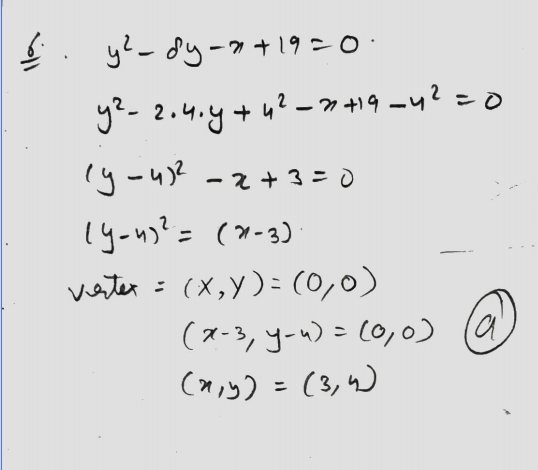 6. y² - 8y - x + 19 = 0.
y² - 2.4.y + 4² - x + 19 - 4² = 0
(y - 4)² - x + 3 = 0
(y - 4)² = (x - 3)
vertex = (X, Y) = (0, 0)
(x - 3, y - 4) = (0, 0) a
(x, y) = (3, 4)